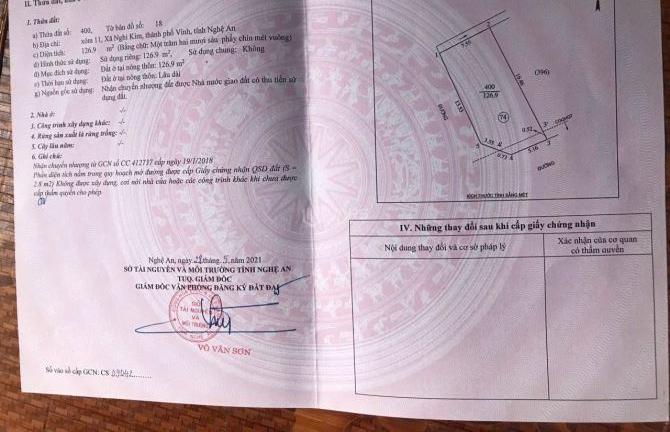 1. Thửa đất:
a) Thửa đất số: 400, Tờ bản đồ số: 18
b) Địa chỉ: xóm 11, Xã Nghi Kim, thành phố Vinh, tỉnh Nghệ An
c) Diện tích: 126.9 m² (Bằng chữ: Một trăm hai mươi sáu phẩy chín mét vuông)
d) Hình thức sử dụng: Sử dụng riêng: 126.9 m², Sử dụng chung: Không
đ) Mục đích sử dụng: Đất ở tại nông thôn: 126.9 m²
e) Thời hạn sử dụng: Đất ở tại nông thôn: Lâu dài
g) Nguồn gốc sử dụng: Nhận chuyển nhượng đất được Nhà nước giao đất có thu tiền sử dụng đất.
2. Nhà ở: -/-
3. Công trình xây dựng khác: -/-
4. Rừng sản xuất là rừng trồng: -/-
5. Cây lâu năm: -/-
6. Ghi chú:
Nhận chuyển nhượng từ GCN số CC 412717 cấp ngày 19/1/2018
Phần diện tích nằm trong quy hoạch mở đường được cấp Giấy chứng nhận QSD đất (S =
2.8 m2) Không được xây dựng, cơi nới nhà cửa hoặc các công trình khác khi chưa được
cấp thẩm quyền cho phép.
Nghệ An, ngày tháng 5. năm 2021
SỞ TÀI NGUYÊN VÀ MÔI TRƯỜNG TỈNH NGHỆ AN
TUQ. GIÁM ĐỐC
GIÁM ĐỐC VĂN PHÒNG ĐĂNG KÝ ĐẤT ĐAI
SỞ
TÀI NGUYÊN
VÀ
MÔI TRƯỜNG
VÕ VĂN SƠN
Số vào sổ cấp GCN: CS
2
(396)
400
126.9
74
ĐƯỜNG
0.52
3'
3
5.16
0.73
4
ĐƯỜNG
KÍCH THƯỚC TÍNH BẰNG MÉT
IV. Những thay đổi sau khi cấp giấy chứng nhận
Nội dung thay đổi và cơ sở pháp lý
Xác nhận của cơ quan
có thẩm quyền